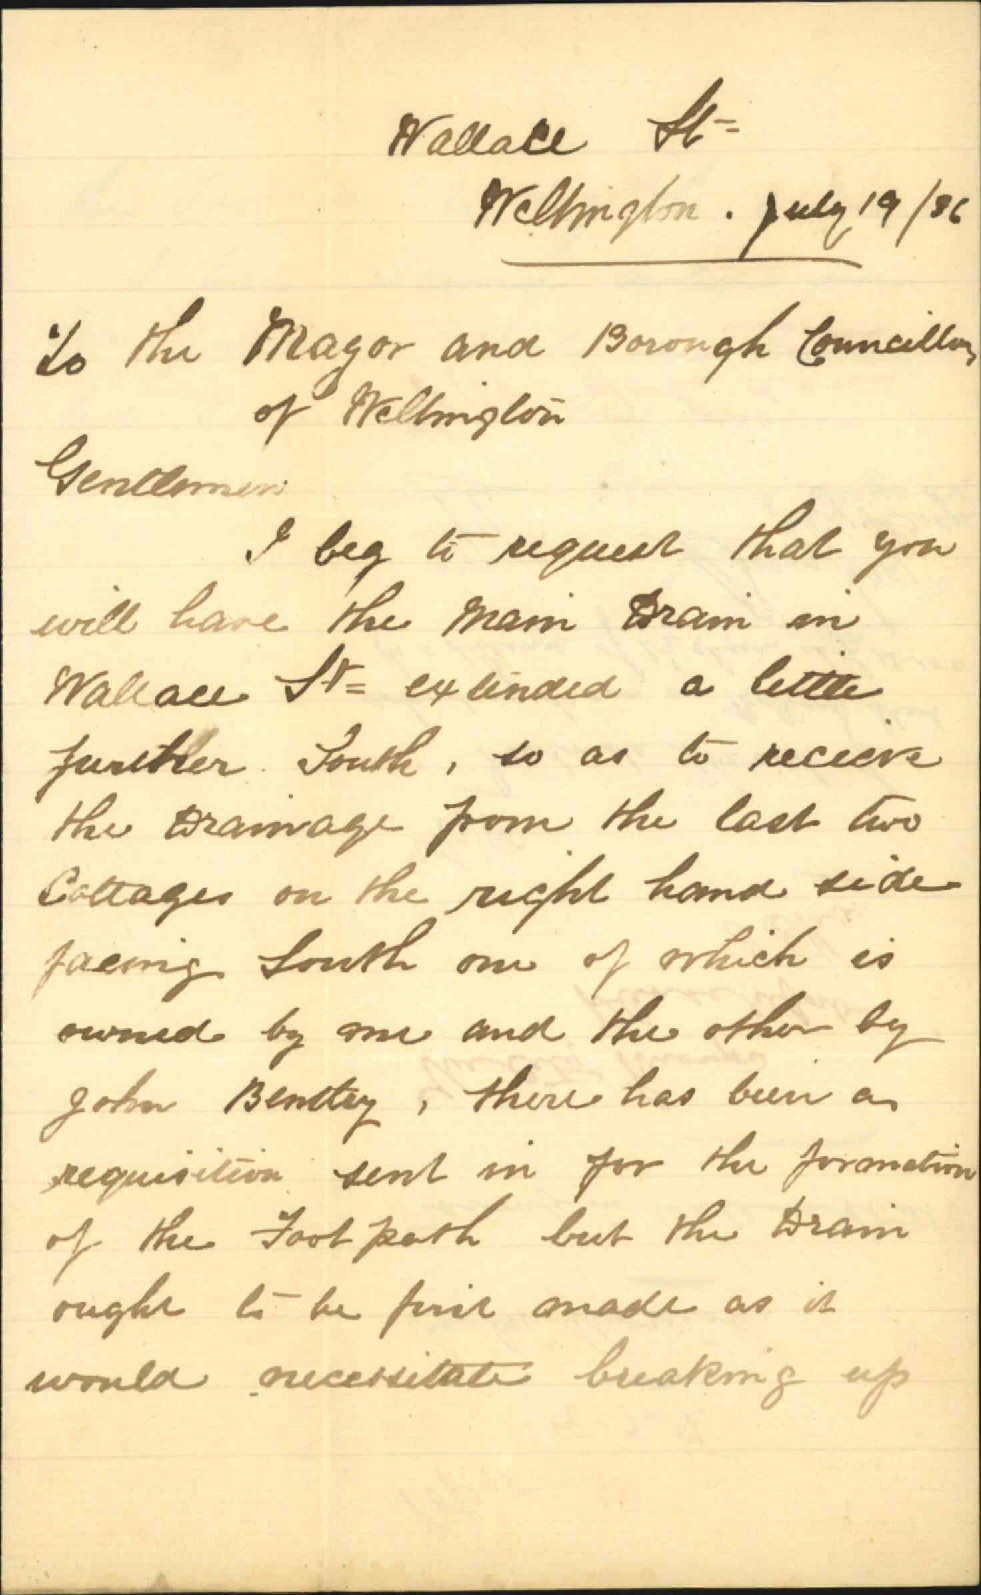 Wallace St=
Wellington. July 19/86
To the Mayor and Borough Councillors
of Wellington
Gentlemen
I beg to request that you
will have the Main Drain in
Wallace St= extended a little
further South, so as to recieve
the Drainage from the last two
Cottages on the right hand side
facing South one of which is
owned by me and the other by
John Bentley, there has been a
requisition sent in for the formation
of the Foot path but the Drain
ought to be first made as it
would necessitate breaking up